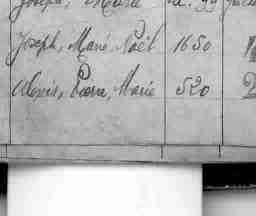 Joseph, Marie
Joseph, Marie Noël 1650
Alexis, Pierre, Marie 520 2